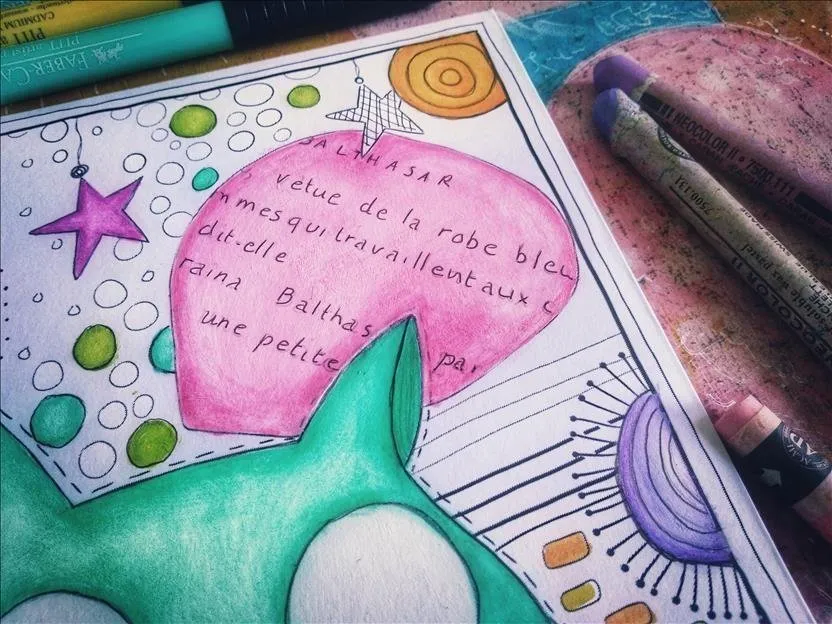 CADMIUM
PITT artist
FABER-CA
PITT artist
BALTHASAR
vetue de la robe bleu
mmes qui travaillent aux c
dit-elle
raina Balthas
une petite par
NEOCOLOR II • 7500.111
7500.131
NEOCOLOR II